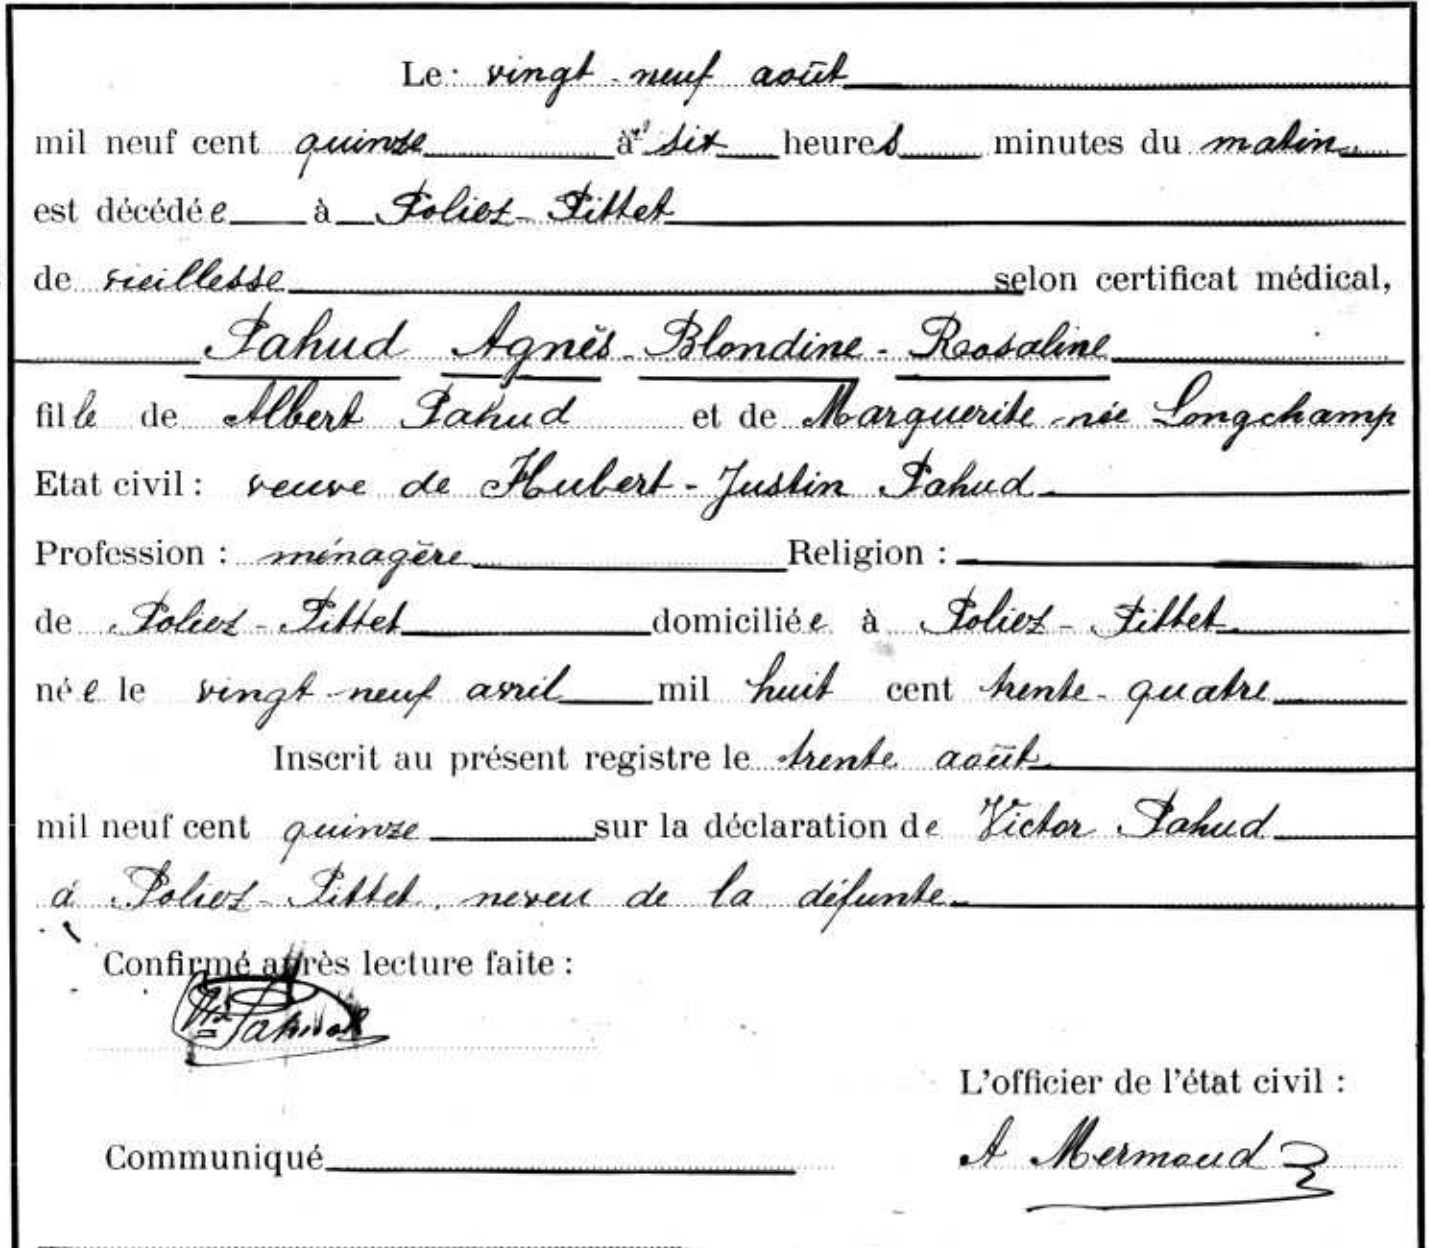 Le: vingt-neuf août
mil neuf cent quinze à six heures minutes du matin
est décédée à Poliez-Pittet
de vieillesse selon certificat médical,
Pahud Agnès-Blondine-Rosaline
fille de Albert Pahud et de Marguerite née Longchamp
Etat civil: veuve de Hubert-Justin Pahud
Profession: ménagère Religion:
de Poliez-Pittet domiciliée à Poliez-Pittet
née le vingt-neuf avril mil huit cent trente-quatre
Inscrit au présent registre le trente août
mil neuf cent quinze sur la déclaration de Victor Pahud
à Poliez-Pittet, neveu de la défunte
Confirmé après lecture faite:
Pahud
L'officier de l'état civil:
Communiqué A Mermoud